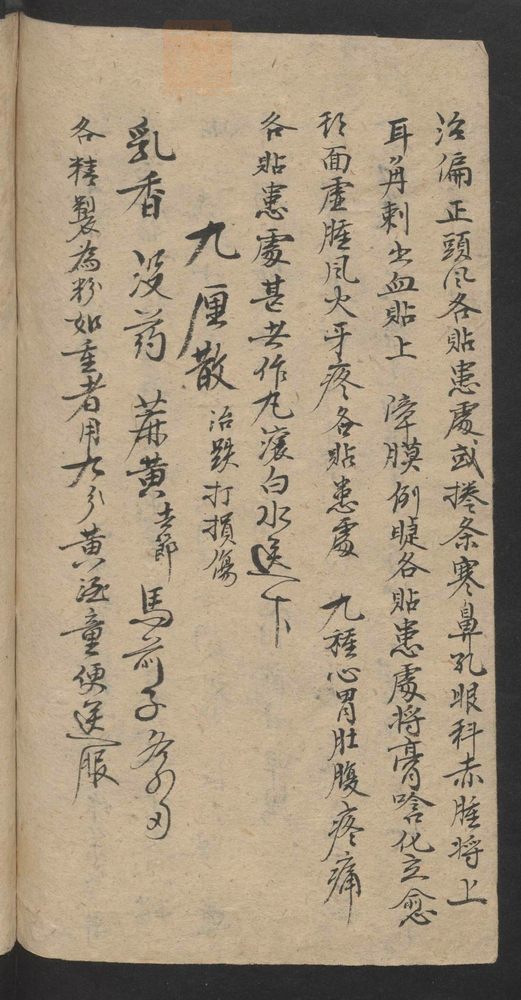 治偏正頭风各貼患處或捲条寒鼻孔眼科赤腫将上
耳角刺出血貼上 障膜例睫各貼患處将膏噙化立愈
面虚腫风火牙疼各貼患處 九種心胃肚腹疼痛
各貼患處甚共作丸滚白水送下
九厘散 治跌打損傷
乳香 没药 蔴黄去節 馬前子各
各精製為粉如重者用九分黄酒童便送服